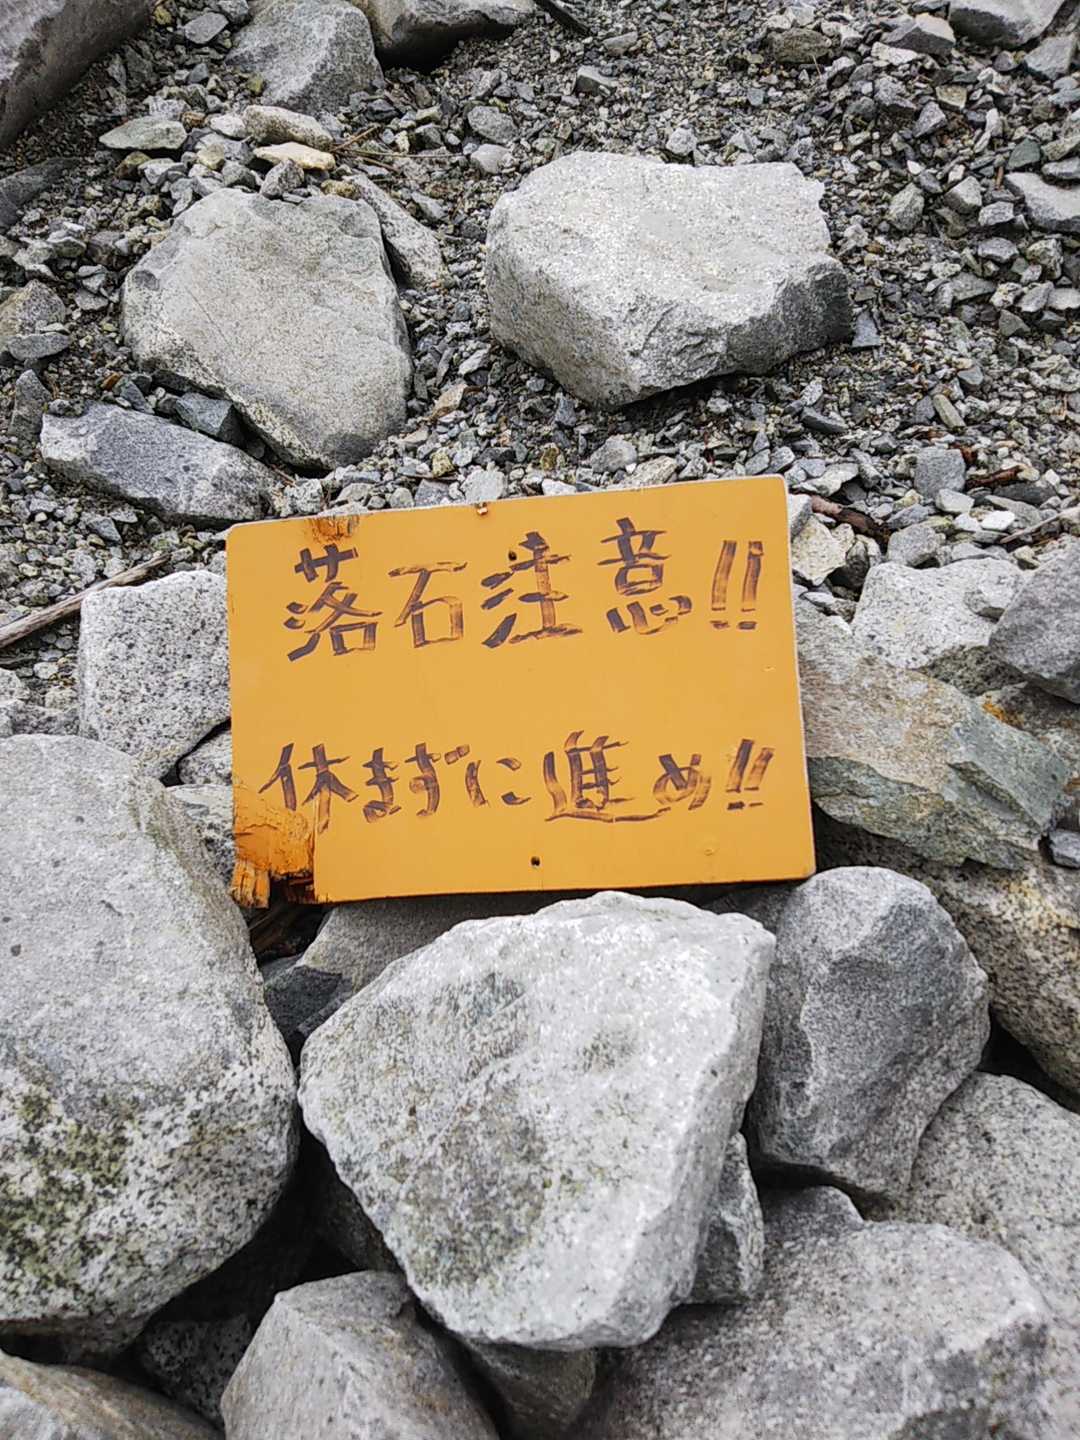 落石注意!!
休まずに進め!!